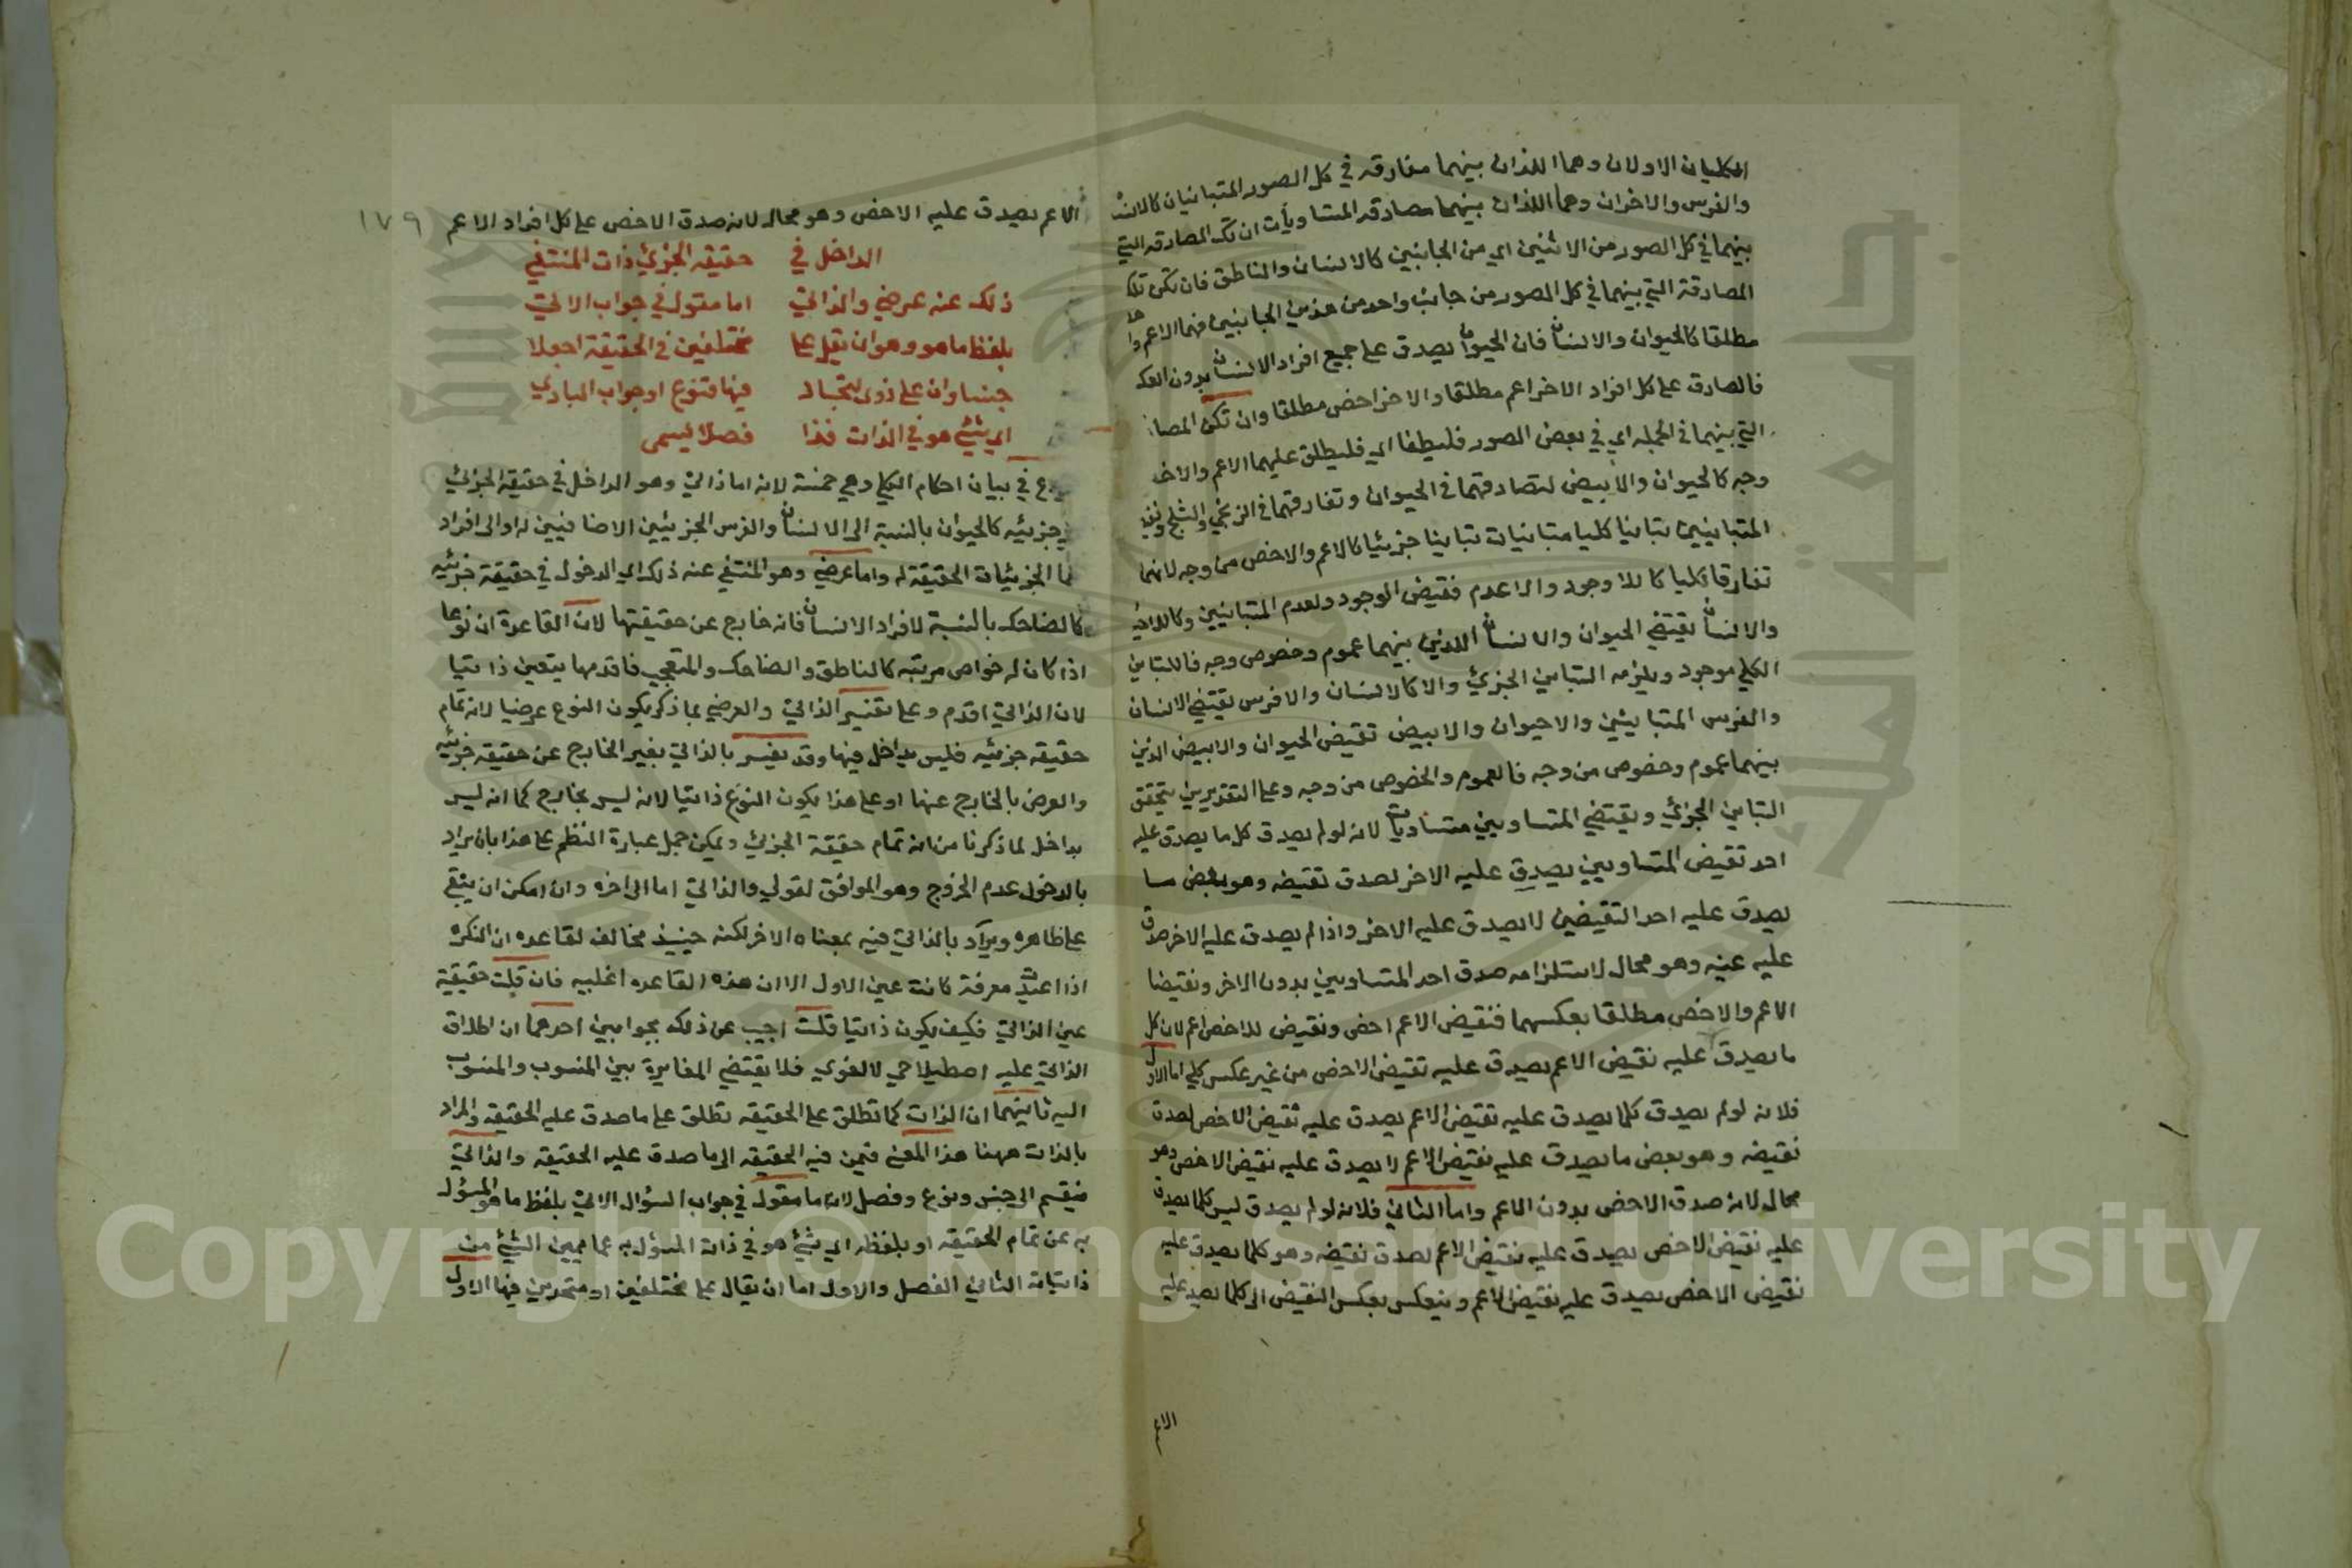 الكليان الاولان وهما اللذان بينهما مفارقه في كل الصور المتباينان كالانسا
والفرس والاخران وهما اللذان بينهما مصادقه المتساويات ان تك المصادقه التي
بينهما في كل الصور من الاثنين اي من الجانبين كالانسان والناطق فان تكن تلك
المصادقة التي بينهما في كل الصور من جانب واحد من هذين الجانبين فهما الاعم وا
مطلقا كالحيوان والانسان فان الحيوان يصدق على جميع افراد الانسان بدون العك
فالصادق على كل افراد الاخر اعم مطلقا والاخر اخص مطلقا وان تكن المصا
التي بينهما في الجمله اي في بعض الصور فليطلقا اي فليطلق عليهما الاعم والاخ
وجه كالحيوان والابيض لتصادقهما في الحيوان وتفارقهما في الزنجي والثلج
المتباينين تباينا كليا متباينات تباينا جزئيا كالاعم والاخص من وجه لانهما
تفارقا كليا كاللا وجود والاعدم فنقيض الوجود والعدم المتباينين وكاللاحي
والانسان نقيضي الحيوان والانسان اللذين بينهما عموم وخصوص وجه فالتباين
الكلي موجود ويلزمه التباين الجزئي والا كالانسان والافرس نقيضي الانسان
والفرس المتباينين والاحيوان والابيض نقيض الحيوان والابيض الذين
بينهما عموم وخصوص من وجه فالعموم والخصوص من وجه وعلى التقديرين يتحقق
التباين الجزئي ونقيضي المتساويين متساويان لانه لولم يصدق كل ما يصدق عليه
احد نقيض المتساويين يصدق عليه الاخر لصدق نقيضه وهو بعض ما
يصدق عليه احد النقيضين لا يصدق عليه الاخر واذا لم يصدق عليه الاخر صدق
عليه عينه وهو محال لاستلزامه صدق احد المتساويين بدون الاخر ونقيضا
الاعم والاخص مطلقا بعكسهما فنقيض الاعم اخص ونقيض الاخص اعم لان كل
ما يصدق عليه نقيض الاعم يصدق عليه نقيض الاخص من غير عكس كلي اما الاول
فلانه لولم يصدق كلما يصدق عليه نقيض الاعم يصدق عليه نقيض الاخص لصدق
نقيضه وهو بعض ما يصدق عليه نقيض الاعم لا يصدق عليه نقيض الاخص وهو
محال لانه صدق الاخص بدون الاعم واما الثاني فلانه لولم يصدق ليس كلما يصدق
عليه نقيض الاخص يصدق عليه نقيض الاعم لصدق نقيضه وهو كلما يصدق عليه
نقيض الاخص يصدق عليه نقيض الاعم وينعكس بعكس النقيض الى كلما يصدق عليه
الاعم
١٧٩
الاعم يصدق عليه الاخص وهو محال لانه صدق الاخص على كل افراد الاعم
الداخل في حقيقه الجزئي ذات المنتفي
ذلك عنه عرضي والذاتي اما مقول في جواب الاتي
بلفظ ما هو وهو ان يقل على مختلفين في الحقيقة اجعلا
جنسا وان على ذوي اتحاد فيها فنوع او جواب البادي
اي شيئ هو في الذات فذا فصلا يسمى
في بيان احكام الكلي وهي خمسة لانه اما ذاتي وهو الداخل في حقيقة الجزئي
جزئيه كالحيوان بالنسبة الى الانسان والفرس الجزئيين الاضافيين له او الى افراد
الجزئيات الحقيقة له واما عرضي وهو المنتفي عنه ذلك اي الدخول في حقيقة جزئيه
كالضاحك بالنسبة لافراد الانسان فانه خارج عن حقيقتها لان القاعدة ان نوعا
اذا كان له خواص مرتبه كالناطق والضاحك والمتعجب فاقدمها يتعين ذاتيا
لان الذاتي اقدم وعلى تفسير الذاتي والعرضي بما ذكر يكون النوع عرضيا لانه تمام
حقيقه جزئيه فليس بداخل فيها وقد يفسر بالذاتي بغير الخارج عن حقيقه جزئيه
والعرض بالخارج عنها او على هذا يكون النوع ذاتيا لانه ليس بخارج كما انه ليس
بداخل لما ذكرنا من انه تمام حقيقة الجزئي ويمكن حمل عبارة النظم على هذا بان يراد
بالدخول عدم الخروج وهو الموافق لقولي والذاتي اما الى اخره وان امكن ان يبقى
على ظاهره ويراد بالذاتي فيه بمعناه الاخر لكنه حينيذ مخالف لقاعده ان النكره
اذا اعيدت معرفة كانت عين الاول الا ان هذه القاعده اغلبيه فان قلت حقيقية
عين الذاتي فكيف يكون ذاتيا قلت اجيب عن ذلك بجوابين احدهما ان اطلاق
الذاتي عليه اصطلاحي لا لغوي فلا يقتضي المغايرة بين المنسوب والمنسوب
اليه ثانيهما ان الذات كما تطلق على الحقيقه تطلق على ما صدق عليه الحقيقه والمراد
بالذات ههنا هذا المعنى فمن فيه الحقيقه الى ما صدق عليه الحقيقه والذاتي
منقسم الى جنس ونوع وفصل لانه ما مقول في جواب السؤال الاتي بلفظ ما هو المسؤل
به عن تمام الحقيقه او بلفظه اي شيئ هو في ذات المسؤل به عما يميز الشيئ من
ذاتياته الثاني الفصل والاول اما ان يقال على مختلفين او متحدين فيها الاول
Copyright © King Saud University